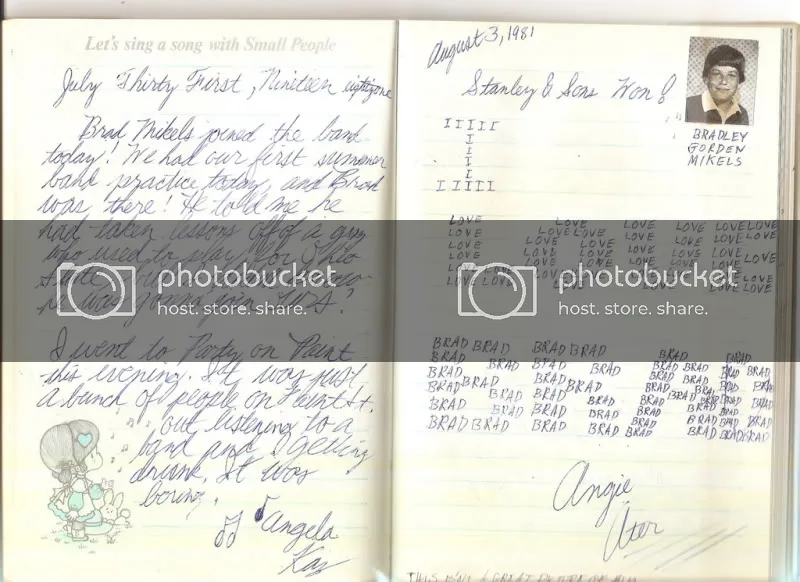 Let's sing a song with Small People
July Thirty First, Nineteen eightyone
Brad Mikels joined the band
today! We had our first summer
band practice today, and Brad
was there! He told me he
had taken lessons off of a guy
who used to play for Ohio
State
was gonna join
I went to Party on Paint
this evening. It was just
a bunch of people on Paint St.
out listening to a
band and getting
drunk. It was
boring.
Angela
Kay
August 3, 1981
Stanley & Sons Won 8
BRADLEY
GORDEN
MIKELS
IIIII
I
I
I
I
IIIII
LOVE LOVE LOVE LOVE LOVE LOVE
LOVE LOVE LOVE LOVE LOVE LOVE
LOVE LOVE LOVE LOVE LOVE LOVE
LOVE LOVE LOVE LOVE LOVE LOVE
LOVE LOVE LOVE LOVE LOVE LOVE
LOVE LOVE LOVE LOVE LOVE LOVE
BRAD BRAD BRAD BRAD BRAD BRAD
BRAD BRAD BRAD BRAD BRAD BRAD BRAD
BRAD BRAD BRAD BRAD BRAD BRAD
BRAD BRAD BRAD BRAD BRAD BRAD BRAD
BRAD BRAD BRAD BRAD BRAD BRAD BRAD
BRAD BRAD BRAD BRAD BRAD BRAD BRAD
Angie
Ater
THIS ISN'T A GREAT PICTURE OF HIM
photobucket
host. store. share.
photobucket
host. store. share.